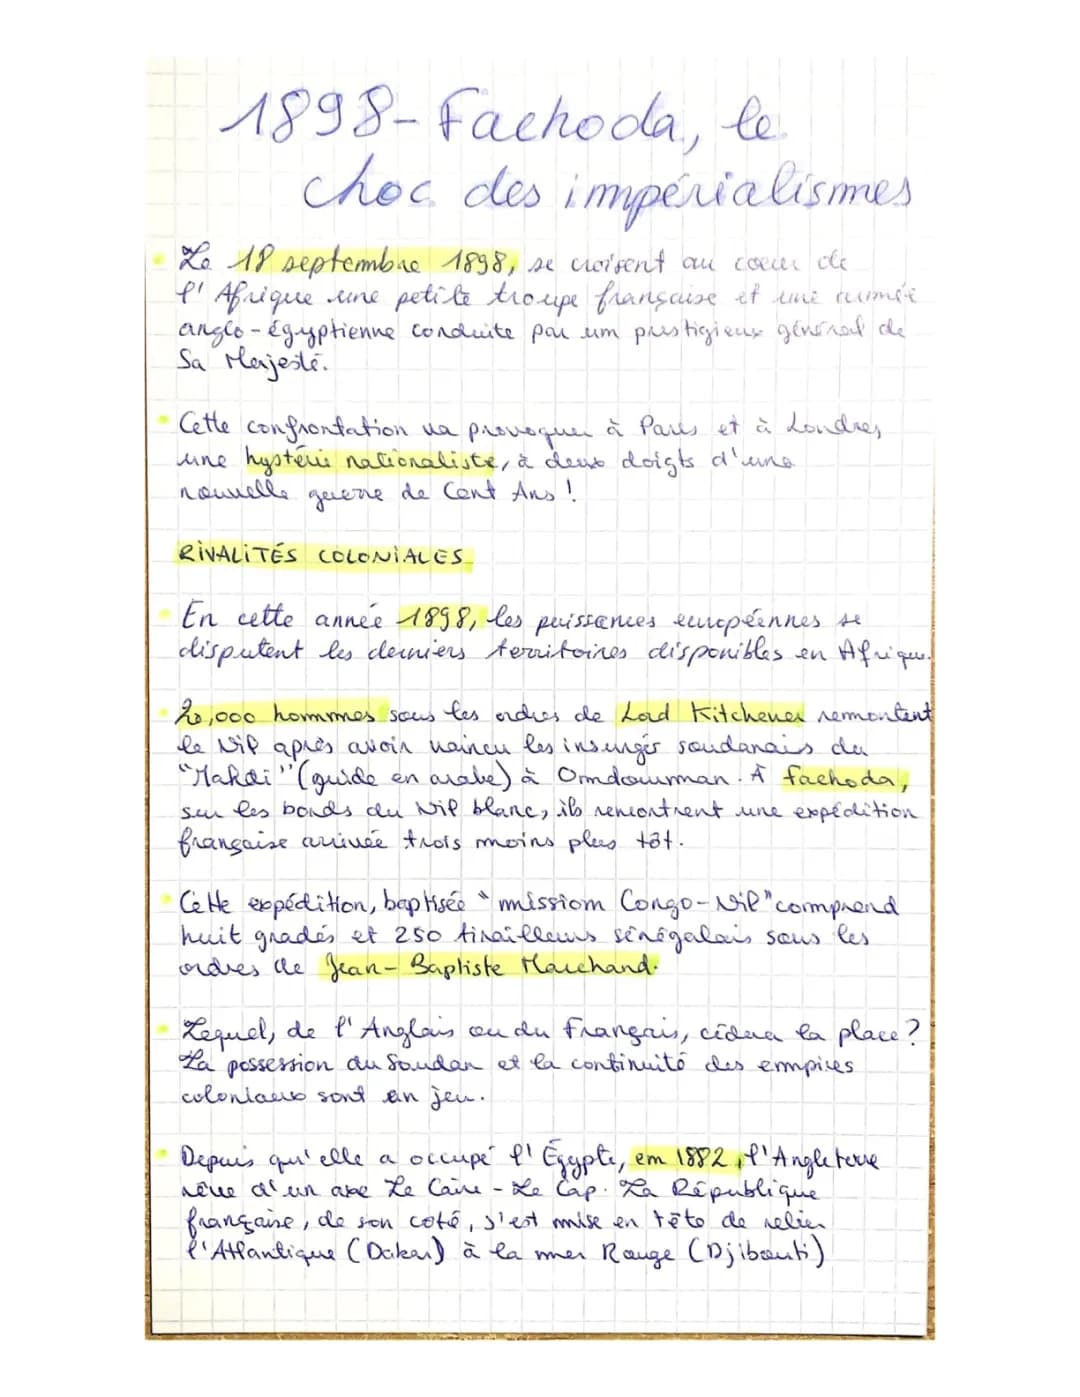 1898- Fachoda, le
choc des impérialismes
Le 18 septembre 1898, se croisent au coeur de
l'Afrique une petite troupe française et une armée
anglo-égyptienne conduite par un prestigieux général de
Sa Majesté.
Cette confrontation va provoquer à Paris et à Londres,
une hystérie nationaliste, à deux doigts d'une
nouvelle guerre de Cent Ans !
RIVALITÉS COLONIALES
En cette année 1898, les puissances européennes se
disputent les derniers territoires disponibles en Afrique.
20,000 hommes sous les ordres de Lord Kitchener remontent
le Nil après avoir vaincu les insurgés soudanais du
"Mahdi" (guide en arabe) à Omdourman. À Fachoda,
sur les bords du Nil blanc, ils rencontrent une expédition
française arrivée trois moins plus tôt.
Cette expédition, baptisée "mission Congo-Nil" comprend
huit gradés et 250 tirailleurs sénégalais sous les
ordres de Jean-Baptiste Marchand.
Lequel, de l'Anglais ou du Français, cédera la place ?
La possession du Soudan et la continuité des empires
coloniaux sont en jeu.
Depuis qu'elle a occupé l'Égypte, em 1882, l'Angleterre
rêve d'un axe Le Caire - Le Cap. La République
française, de son coté, s'est mise en tête de relier
l'Atlantique (Dakar) à la mer Rouge (Djibouti)